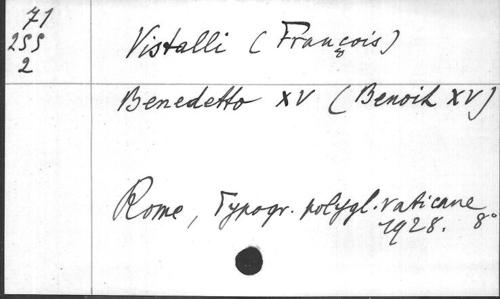 71
255
2
Vistalli (François)
Benedetto XV (Benoit XV)
Rome, Typogr. polygl. vaticane
1928. 8°